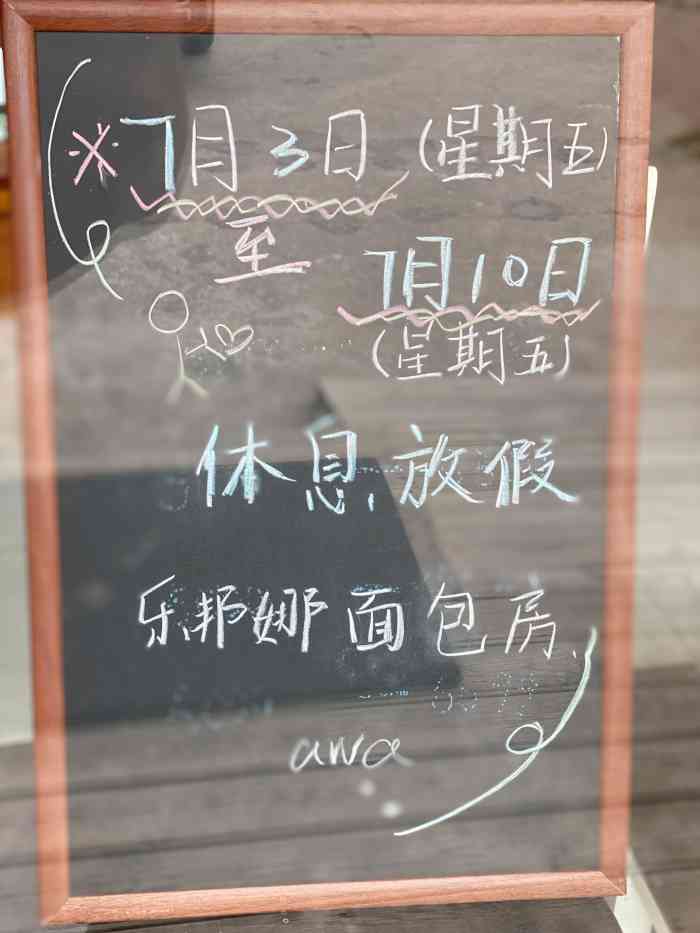 ※7月3日（星期五）
至
7月10日
（星期五）
休息，放假
乐邦娜面包房.
awa